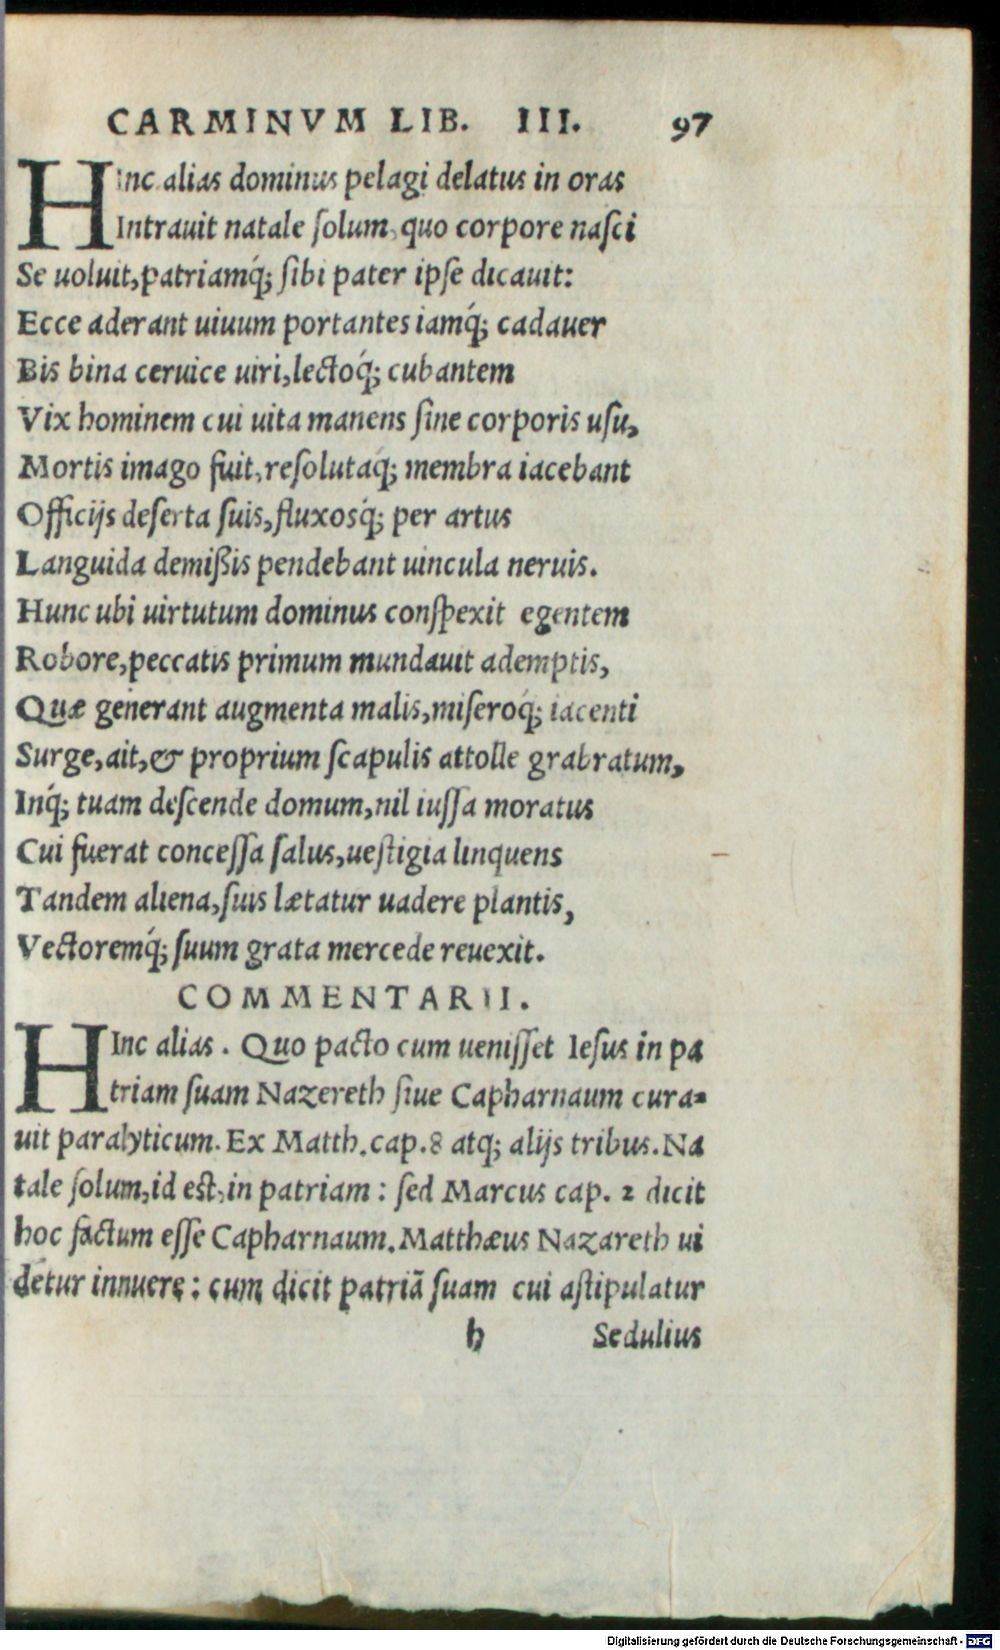 CARMINVM LIB. III. 97
HInc alias dominus pelagi delatus in oras
Intrauit natale ſolum, quo corpore naſci
Se uoluit, patriamq́; ſibi pater ipſe dicauit:
Ecce aderant uiuum portantes iamq́; cadauer
Bis bina ceruice uiri, lectoq́; cubantem
Vix hominem cui uita manens ſine corporis uſu,
Mortis imago fuit, reſolutaq́; membra iacebant
Officijs deſerta ſuis, fluxosq́; per artus
Languida demiſsis pendebant uincula neruis.
Hunc ubi uirtutum dominus conſpexit egentem
Robore, peccatis primum mundauit ademptis,
Quæ generant augmenta malis, miſeroq́; iacenti
Surge, ait, & proprium ſcapulis attolle grabratum,
Inq́; tuam deſcende domum, nil iuſſa moratus
Cui fuerat conceſſa ſalus, ueſtigia linquens
Tandem aliena, ſuis lætatur uadere plantis,
Vectoremq́; ſuum grata mercede reuexit.
COMMENTARII.
HInc alias. Quo pacto cum ueniſſet Ieſus in pa
triam ſuam Nazereth ſiue Capharnaum cura-
uit paralyticum. Ex Matth. cap. 8 atq; alijs tribus. Na
tale ſolum, id eſt, in patriam: ſed Marcus cap. 2 dicit
hoc factum eſſe Capharnaum. Matthæus Nazareth ui
detur innuere: cum dicit patriã ſuam cui aſtipulatur
h Sedulius
Digitalisierung gefördert durch die Deutsche Forschungsgemeinschaft - DFG